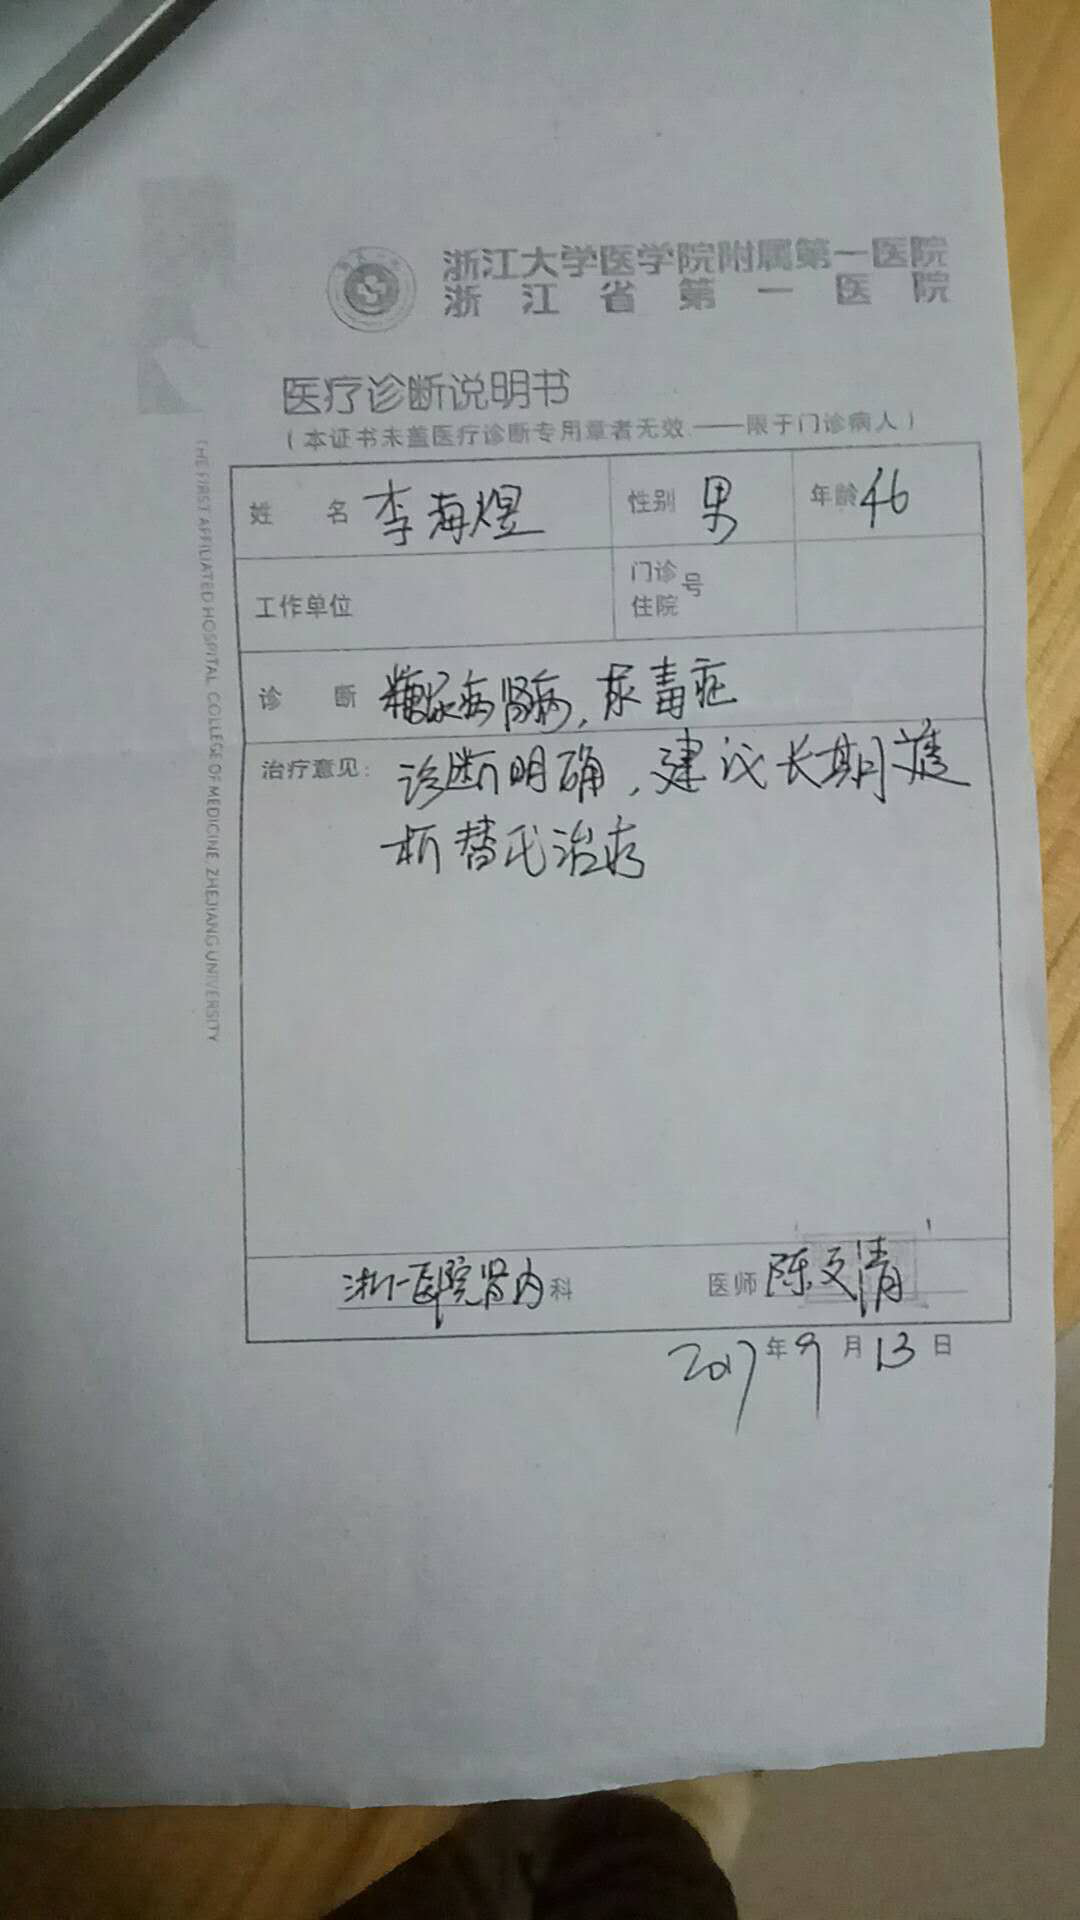 浙江大学医学院附属第一医院
浙江省第一医院
医疗诊断说明书
（本证书未盖医疗诊断专用章者无效——限于门诊病人）
姓名 李海煜 性别 男 年龄 46
工作单位 门诊住院号
诊断 糖尿病肾病，尿毒症
治疗意见： 诊断明确，建议长期透
析替代治疗
浙一医院肾内科 医师 陈文清
2017年9月13日
THE FIRST AFFILIATED HOSPITAL COLLEGE OF MEDICINE ZHEJIANG UNIVERSITY